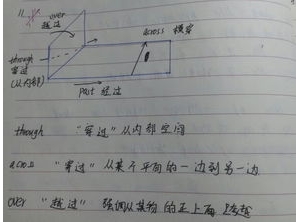 over
越过
across 横穿
through
穿过
(从内部)
past 经过
through "穿过" 从内部空间
across "穿过" 从某个平面的一边到另一边
over "越过" 强调从某物的正上方跨越